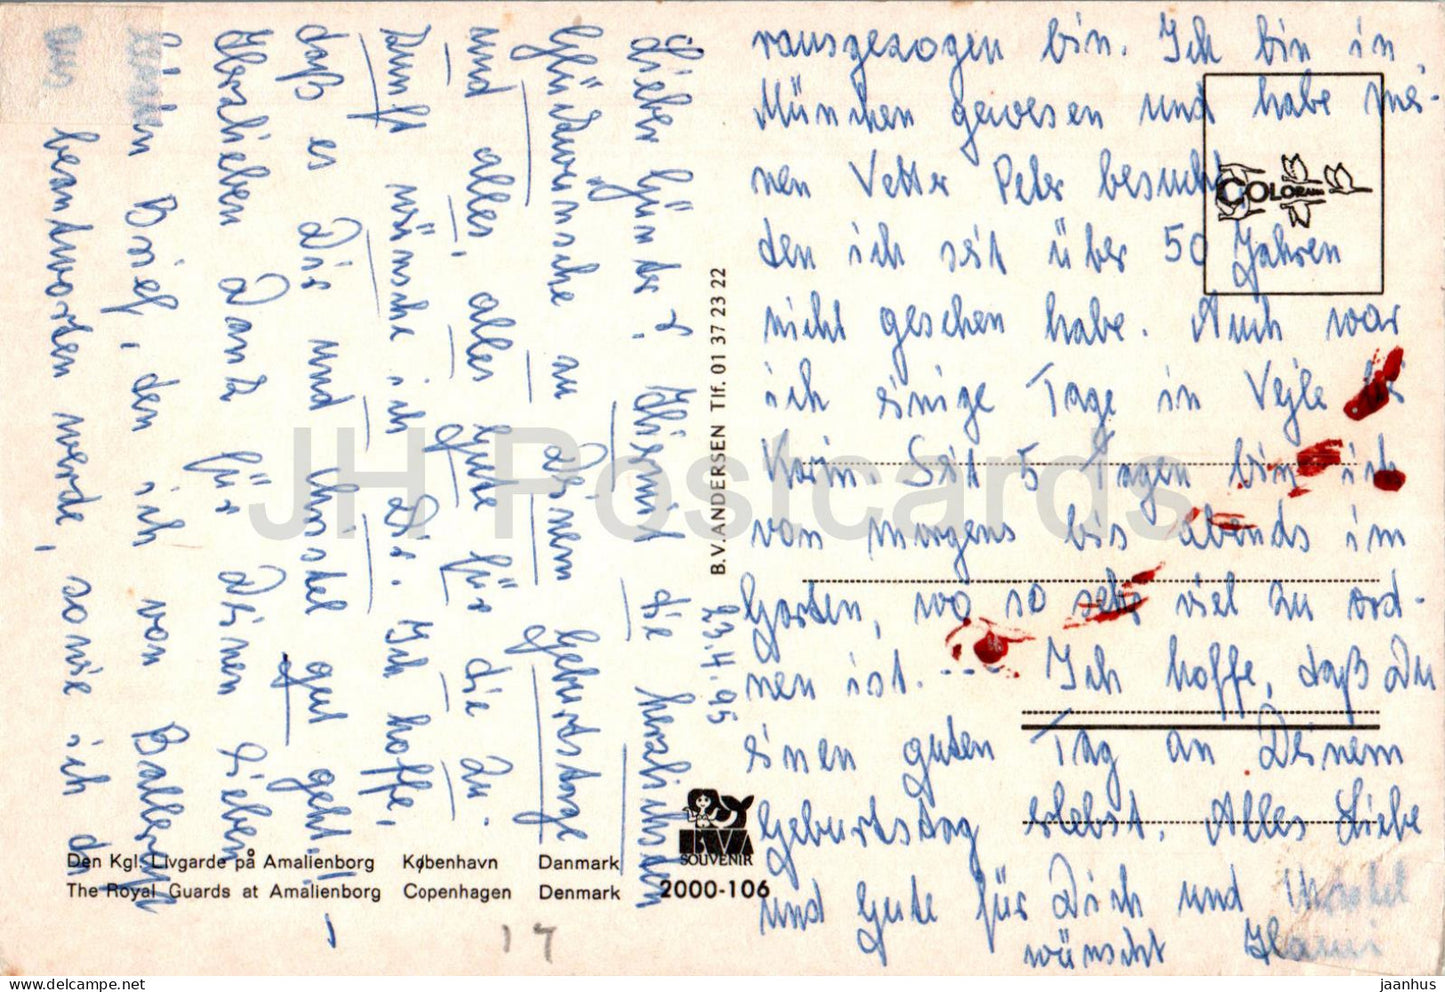 23.4.95
Lieber Günter! Hiermit die herzlichsten
Glückwünsche zu Deinem Geburtstage
und alles, alles Gute für die Zu-
kunft wünsche ich Dir. Ich hoffe,
daß es Dir und Christel gut geht!
Herzlichen Dank für Deinen lieben
Brief, den ich von
beantworten werde, sowie ich da
aus
rausgezogen bin. Ich bin in
München gewesen und habe mei-
nen Vetter Peter besucht
den ich seit über 50 Jahren
nicht gesehen habe. Auch war
ich einige Tage in Vejle bei
Karin. Seit 5 Tagen bin ich
von morgens bis abends im
Garten, wo so sehr viel zu ord-
nen ist. --- Ich hoffe, daß Du
einen guten Tag an Deinem
Geburtstag erlebst. Alles Liebe
und Gute für Dich und Christel
wünscht Hanni
B.V. ANDERSEN Tlf. 01 37 23 22
COLOR
BVA
SOUVENIR
2000-106
Den Kgl. Livgarde på Amalienborg København Danmark
The Royal Guards at Amalienborg Copenhagen Denmark
17
JH Postcards
www.delcampe.net
jaanhus